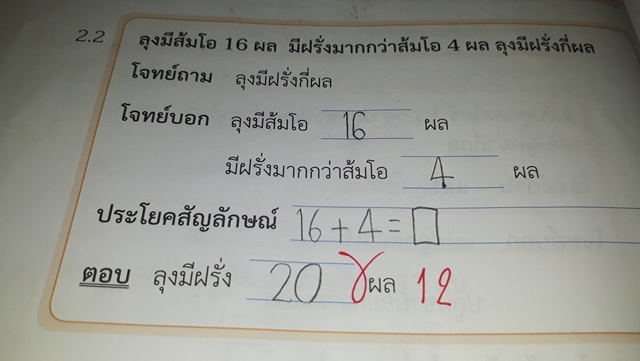 2.2 ลุงมีส้มโอ 16 ผล มีฝรั่งมากกว่าส้มโอ 4 ผล ลุงมีฝรั่งกี่ผล
โจทย์ถาม ลุงมีฝรั่งกี่ผล
โจทย์บอก ลุงมีส้มโอ 16 ผล
มีฝรั่งมากกว่าส้มโอ 4 ผล
ประโยคสัญลักษณ์ 16 + 4 = □
ตอบ ลุงมีฝรั่ง 20 ผล 12